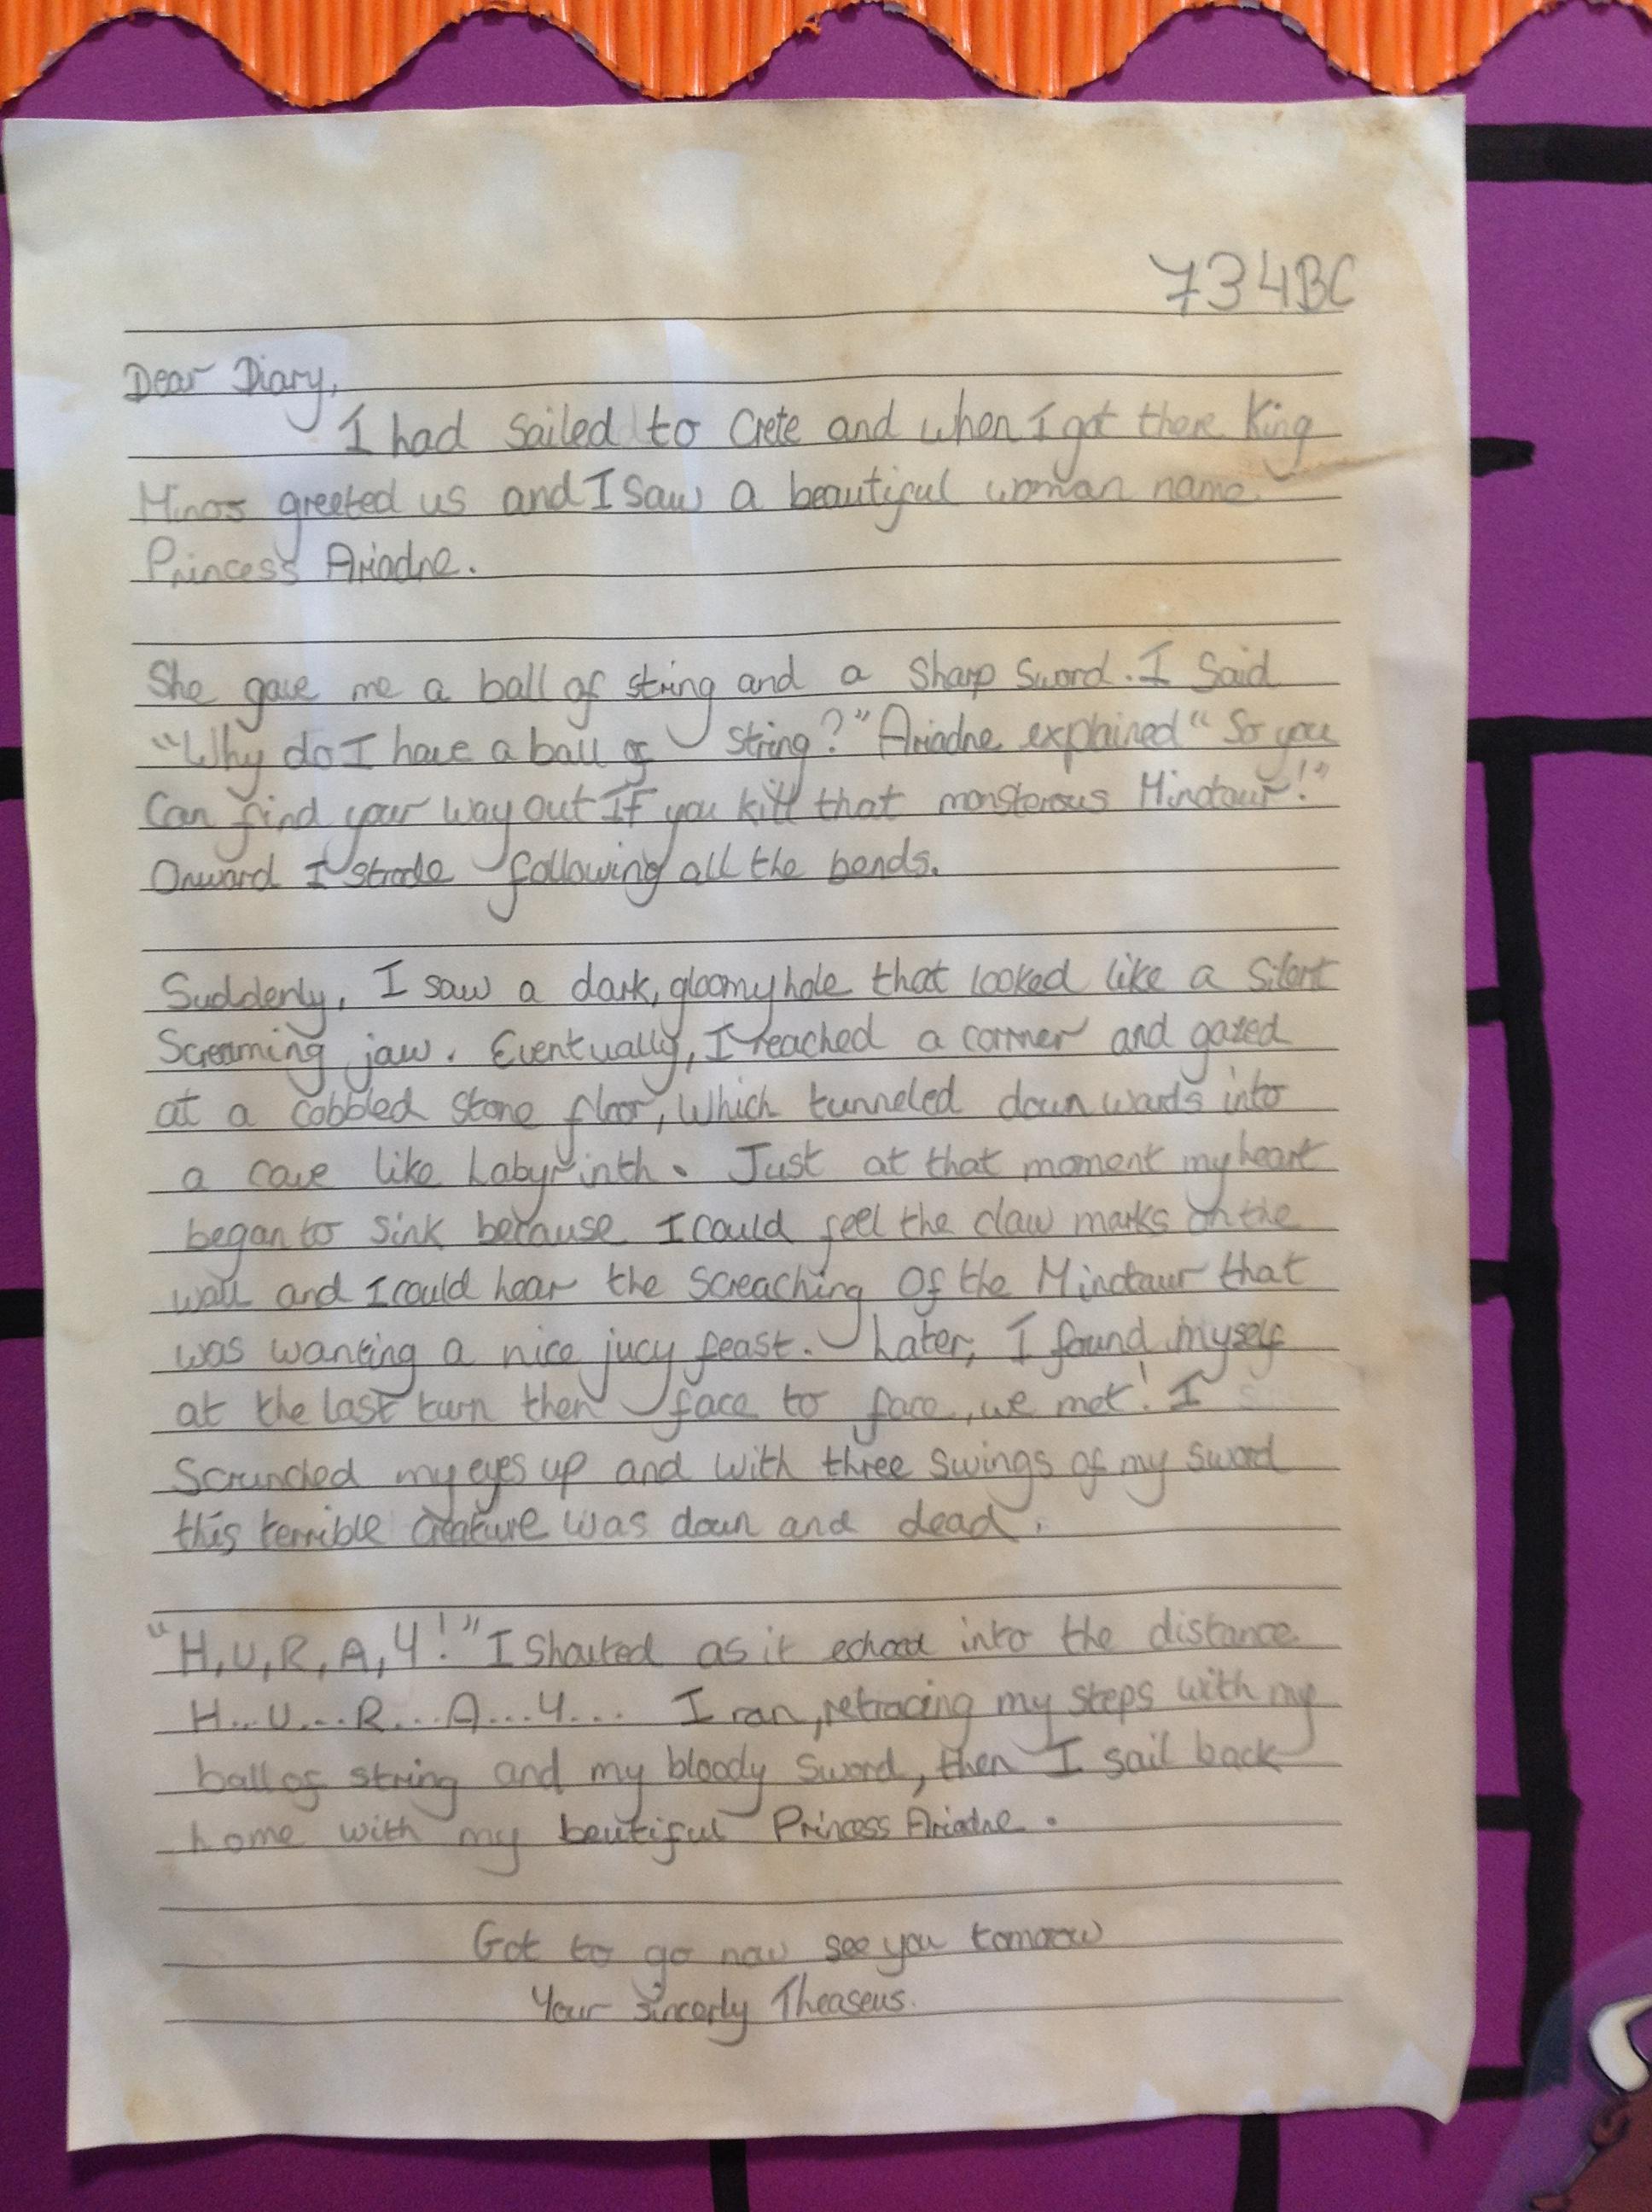 734BC
Dear Diary,
I had sailed to Crete and when I got there King
Minos greeted us and I saw a beautiful woman name
Princess Ariadne.
She gave me a ball of string and a sharp sword. I said
"Why do I have a ball of string?" Ariadne explained "So you
can find your way out If you kill that monsterous Minotaur!"
Onward I strode following all the bends.
Suddenly, I saw a dark, gloomy hole that looked like a silent
screaming jaw. Eventually, I reached a corner and gazed
at a cobbled stone floor, which tunneled down wards into
a cave like Labyrinth. Just at that moment my heart
began to sink because I could feel the claw marks on the
wall and I could hear the screaching Of the Minotaur that
was wanting a nice jucy feast. Later, I found myself
at the last turn then face to face, we met! I
scrunched my eyes up and with three swings of my sword
this terrible creature was down and dead.
"H,U,R,A,Y!" I shouted as it echoed into the distance
H...U...R...A...Y... I ran, retracing my steps with my
ball of string and my bloody sword, then I sail back
home with my beutiful Princess Ariadne.
Got to go now see you tomorow
Your sincerly Theaseus.